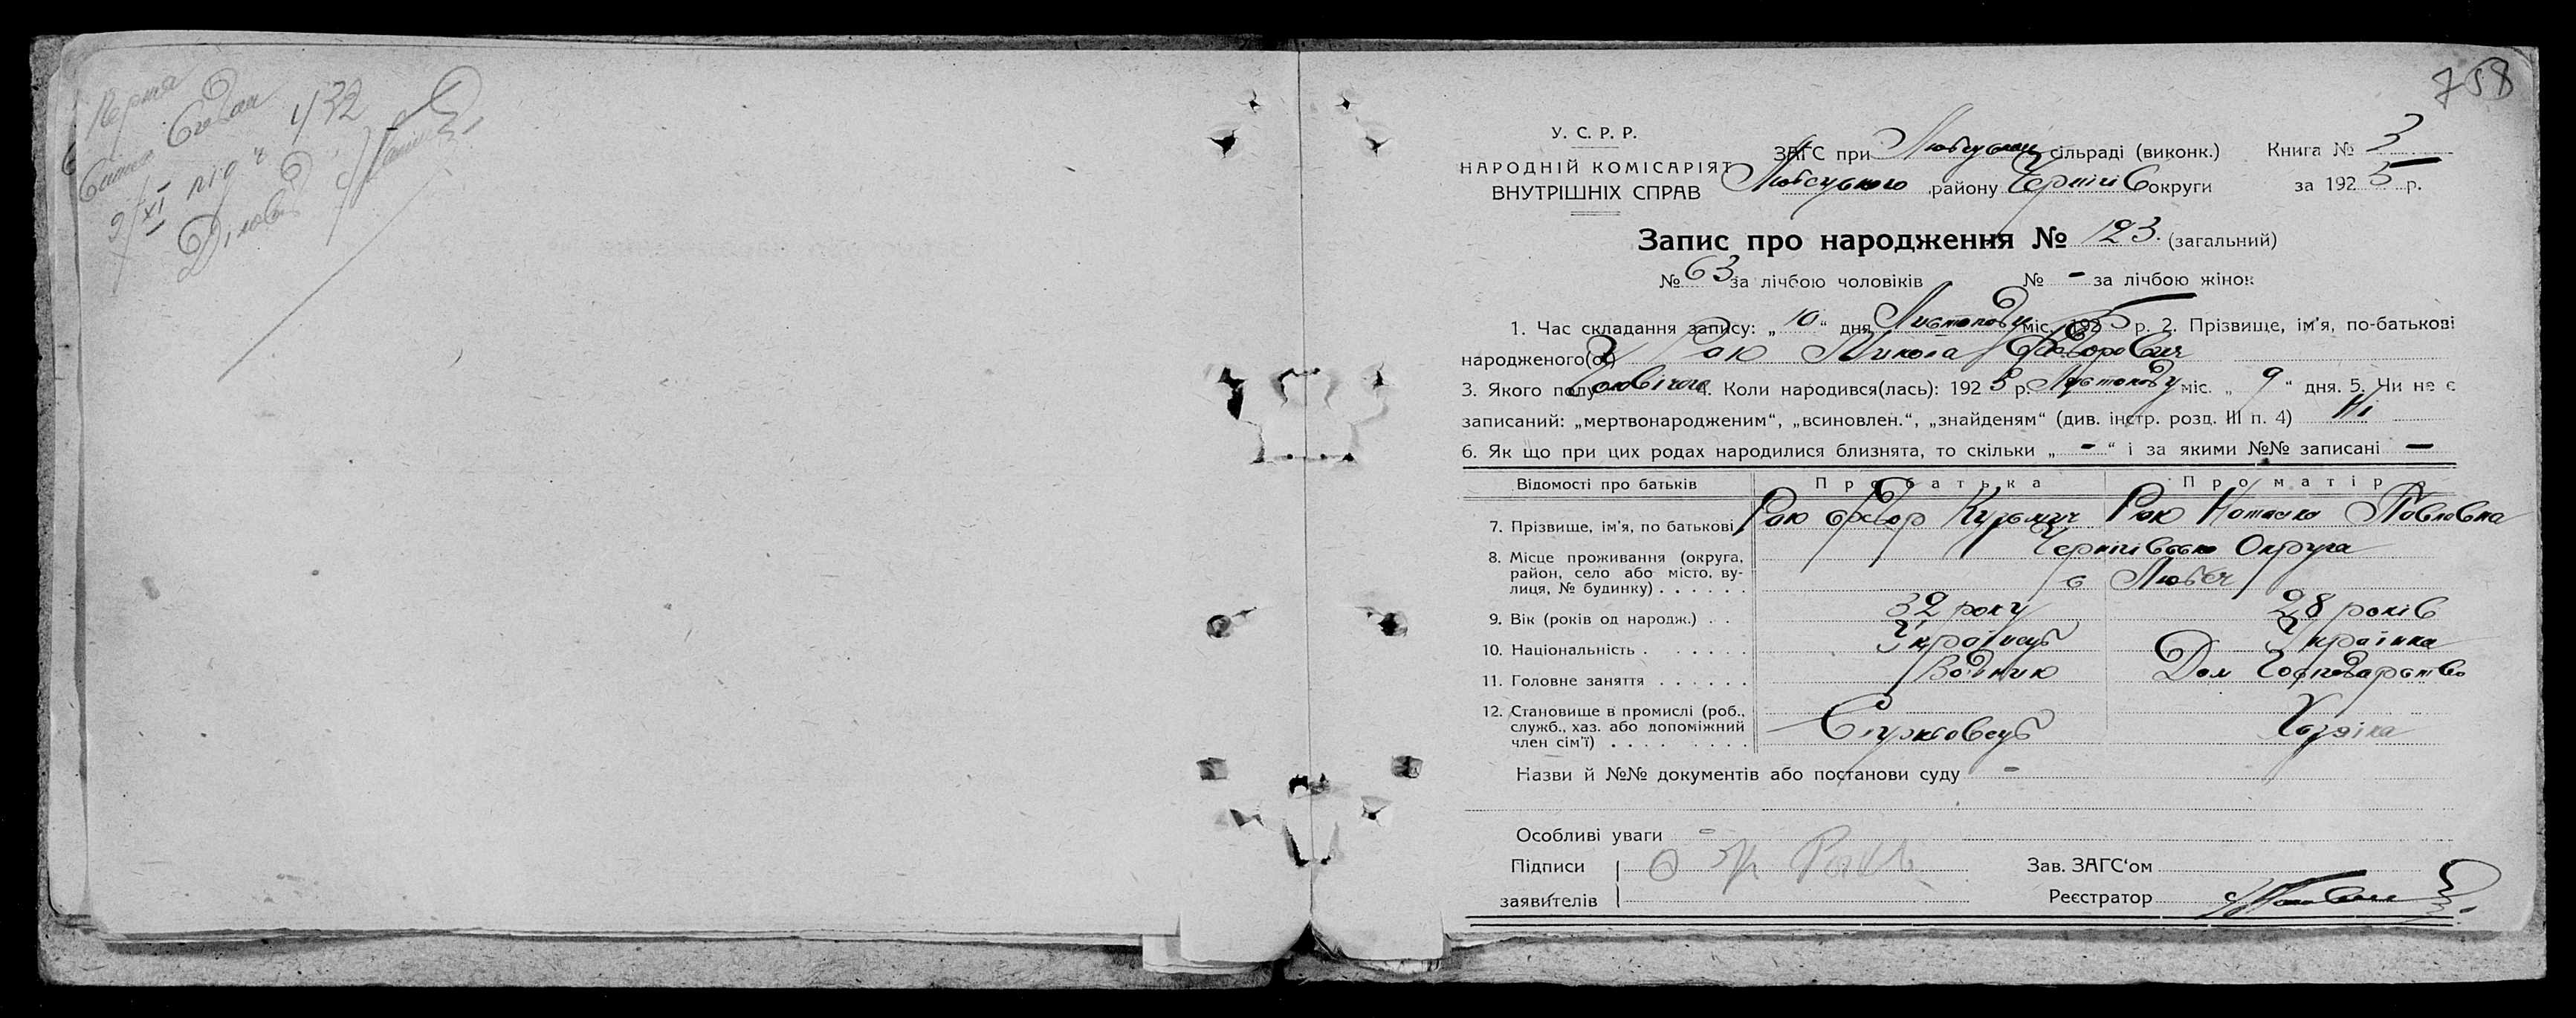 432
758
У. С. Р. Р.
НАРОДНІЙ КОМІСАРІЯТ
ВНУТРІШНІХ СПРАВ
ЗАГС при сільраді (виконк.) Книга № 3
Любецького району Чернігів округи за 1925 р.
Запис про народження № 123. (загальний)
№ 63 за лічбою чоловіків № - за лічбою жінок
1. Час складання запису: „10“ дня Листопаду міс. 1925 р. 2. Прізвище, ім'я, по-батькові
народженого(ої) Рак Микола Федорович
3. Якого полу Чоловічого 4. Коли народився(лась): 1925 р. Листопаду міс. „9“ дня. 5. Чи не є
записаний: „мертвонародженим“, „всиновлен.“, „знайденям“ (див. інстр. розд. III п. 4) Ні
6. Як що при цих родах народилися близнята, то скільки „-“ і за якими №№ записані —
Відомості про батьків Про батька Про матір
7. Прізвище, ім'я, по батькові Рак Федор Кузьмич Рак Наталка Павловна
8. Місце проживання (округа, Чернігівська Округа
район, село або місто, ву-
лиця, № будинку) . . . . . . с Любеч
9. Вік (років од народж.) . . 32 року 28 років
10. Національність . . . . . . Українець Українка
11. Головне заняття . . . . . . Водник Дом Господарство
12. Становище в промислі (роб.,
служб., хаз. або допоміжний
член сім'ї) . . . . . . . . . Службовець Хазяїка
Назви й №№ документів або постанови суду -
Особливі уваги -
Підписи Зав. ЗАГС‘ом
заявителів Реєстратор